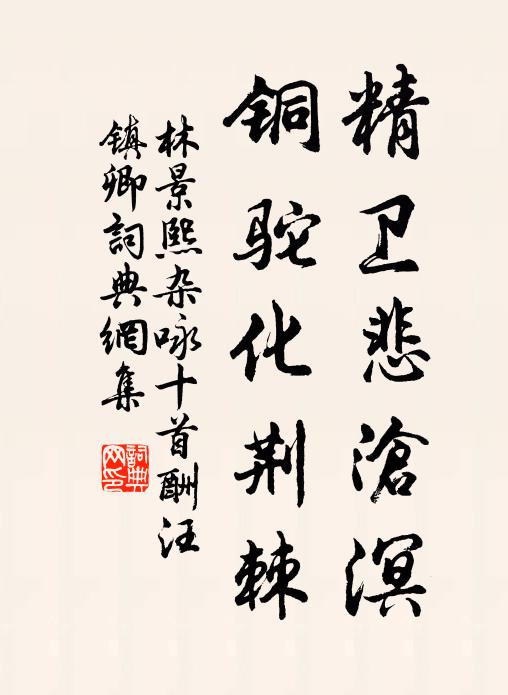 精卫悲滄溟
铜驼化荆棘
林景熙杂咏十首酬汪
镇卿詞典網集
詞典网印